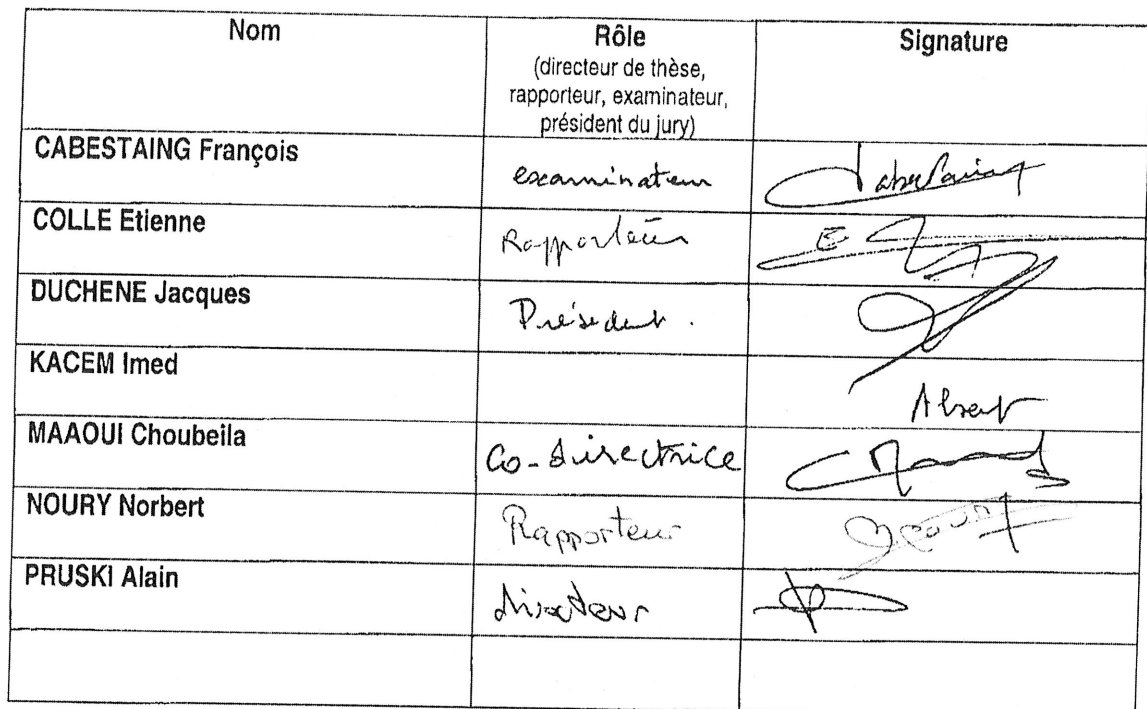 Nom
Rôle
(directeur de thèse,
rapporteur, examinateur,
président du jury)
Signature
CABESTAING François
examinateur
COLLE Etienne
Rapporteur
DUCHENE Jacques
Président.
KACEM Imed
Absent
MAAOUI Choubeila
Co-directrice
NOURY Norbert
Rapporteur
PRUSKI Alain
directeur